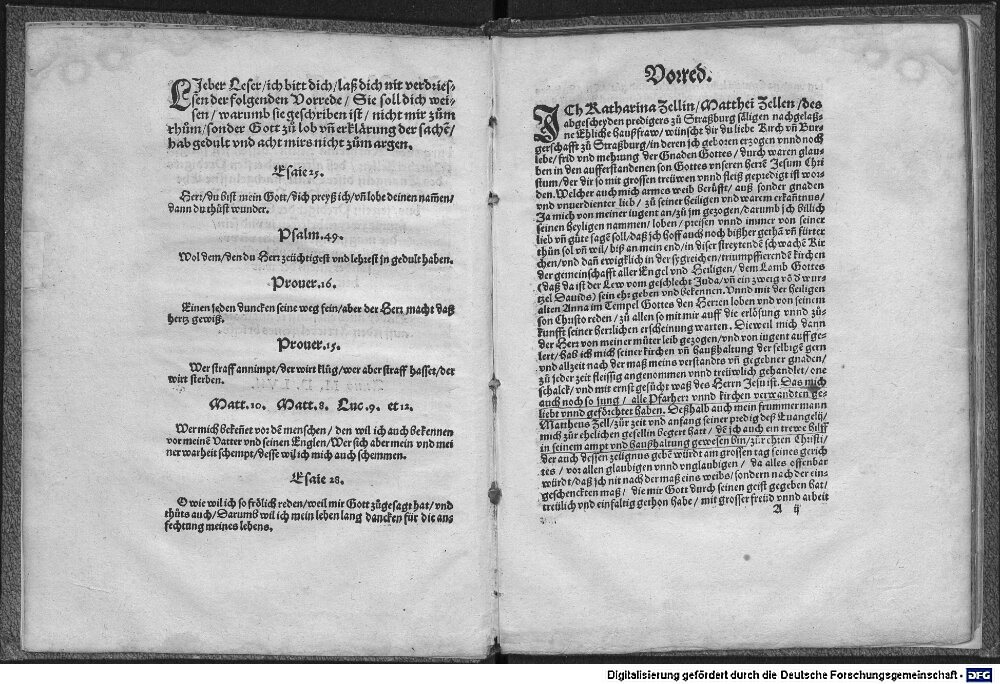 LJeber Leser/ich bitt dich/laß dich nit verdries-
sen der folgenden Vorrede/ Sie soll dich wei-
sen/ warumb sie geschriben ist/ nicht mir zům
rhům/sonder Gott zů lob vñ erklårung der sachẽ/
hab gedult vnd acht mirs nicht zům argen.
Esaie 25.
Herr/du bist mein Gott/dich preyß ich/vñ lobe deinen namen/
dann du thůst wunder.
Psalm. 49.
Wol dem/den du Herr zeüchtigest vnd lehrest in gedult haben.
Prouer. 16.
Einen jeden duncken seine weg fein/aber der Herr macht daß
hertz gewiß.
Prouer. 15.
Wer straff annimpt/der wirt klůg/wer aber straff hasset/der
wirt sterben.
Matt. 10. Matt. 8. Luc. 9. et 12.
Wer mich bekeñet vor dẽ menschen/ den wil ich auch bekennen
vor meinẽ Vatter vnd seinen Englen/Wer sich aber mein vnd mei
ner warheit schempt/desse wil ich mich auch schemmen.
Esaie 28.
O wie wil ich so frölich reden/weil mir Gott zůgesagt hat/vnd
thůts auch/Darumb wil ich mein leben lang dancken für die an-
fechtung meines lebens.
Vorred.
ICh Katharina Zellin/Matthei Zellen/des
abgescheyden predigers zů Straßburg såligen nachgelaß-
ne Ehliche haußfraw/ wünscht dir du liebe Kirch vñ Bur-
gerschafft zů Straßburg/in deren ich geboren erzogen vnnd noch
lebe/ frid vnd mehrung der Gnaden Gottes/ durch waren glau-
ben in den aufferstandenen son Gottes vnseren herrẽ Jesum Chri
stum/der dir so mit grossen treüwen vnnd fleiß gepredigt ist wor-
den. Welcher auch mich armes weib berüfft/ auß sonder gnaden
vnd vnuerdienter lieb/ zů seiner heiligen vnd warem erkañtnus/
Ja mich von meiner iugent an/zů jm gezogen/darumb ich billich
seinen heyligen nammen/ loben/ preisen vnnd immer von seiner
lieb vñ gůte sagẽ soll/daß ich hoff auch noch bißher gethã vñ fürter
thůn sol vñ wil/ biß an mein end/in diser streytendẽ schwachẽ Kir
chen/vnd dañ ewigklich in der sygreichen/triumpffierendẽ kirchen
der gemeinschafft aller Engel vnd Heiligen/ dem Lamb Gottes
(daß da ist der Lew vom geschlecht Juda/vñ ein zweig võ d wur-
tzel Dauids) sein ehr geben vnd bekennen. Vnnd mit der heiligen
alten Anna im Tempel Gottes den Herren loben vnd von seinem
son Christo reden/ zů allen so mit mir auff die erlösung vnnd zů-
kunfft seiner herrlichen erscheinung warten. Dieweil mich dann
der Herr von meiner můter leib gezogen/vnd von iugent auff ge-
lert/hab ich mich seiner kirchen vñ haußhaltung der selbigẽ gern
vnd allzeit nach der maß meins verstandts vñ gegebner gnaden/
zů jeder zeit fleissig angenommen vnnd treüwlich gehandlet/ one
schalck/ vnd mit ernst gesůcht waß des Herrn Jesu ist. Das mich
auch noch so jung / alle Pfarherr vnnd kirchen verwandten ge-
liebt vnnd geförchtet haben. Deßhalb auch mein frummer mann
Mattheus Zell/zůr zeit vnd anfang seiner predig deß Euangelij/
mich zůr ehelichen gesellin begert hatt / dẽ ich auch ein trewe hilff
in seinem ampt vnd haußhaltung gewesen bin/zůr ehren Christi/
der auch dessen zeügnus gebẽ würdt am grossen tag seines gerich
tes / vor allen glaubigen vnnd vnglaubigen / da alles offenbar
würdt/daß ich nit nach der maß eins weibs/sondern nach der ein-
geschenckten maß/ die mir Gott durch seinen geist gegeben hat/
treülich vnd einfaltig gethon habe/ mit grosser freüd vnnd arbeit
A ij
Digitalisierung gefördert durch die Deutsche Forschungsgemeinschaft - DFG